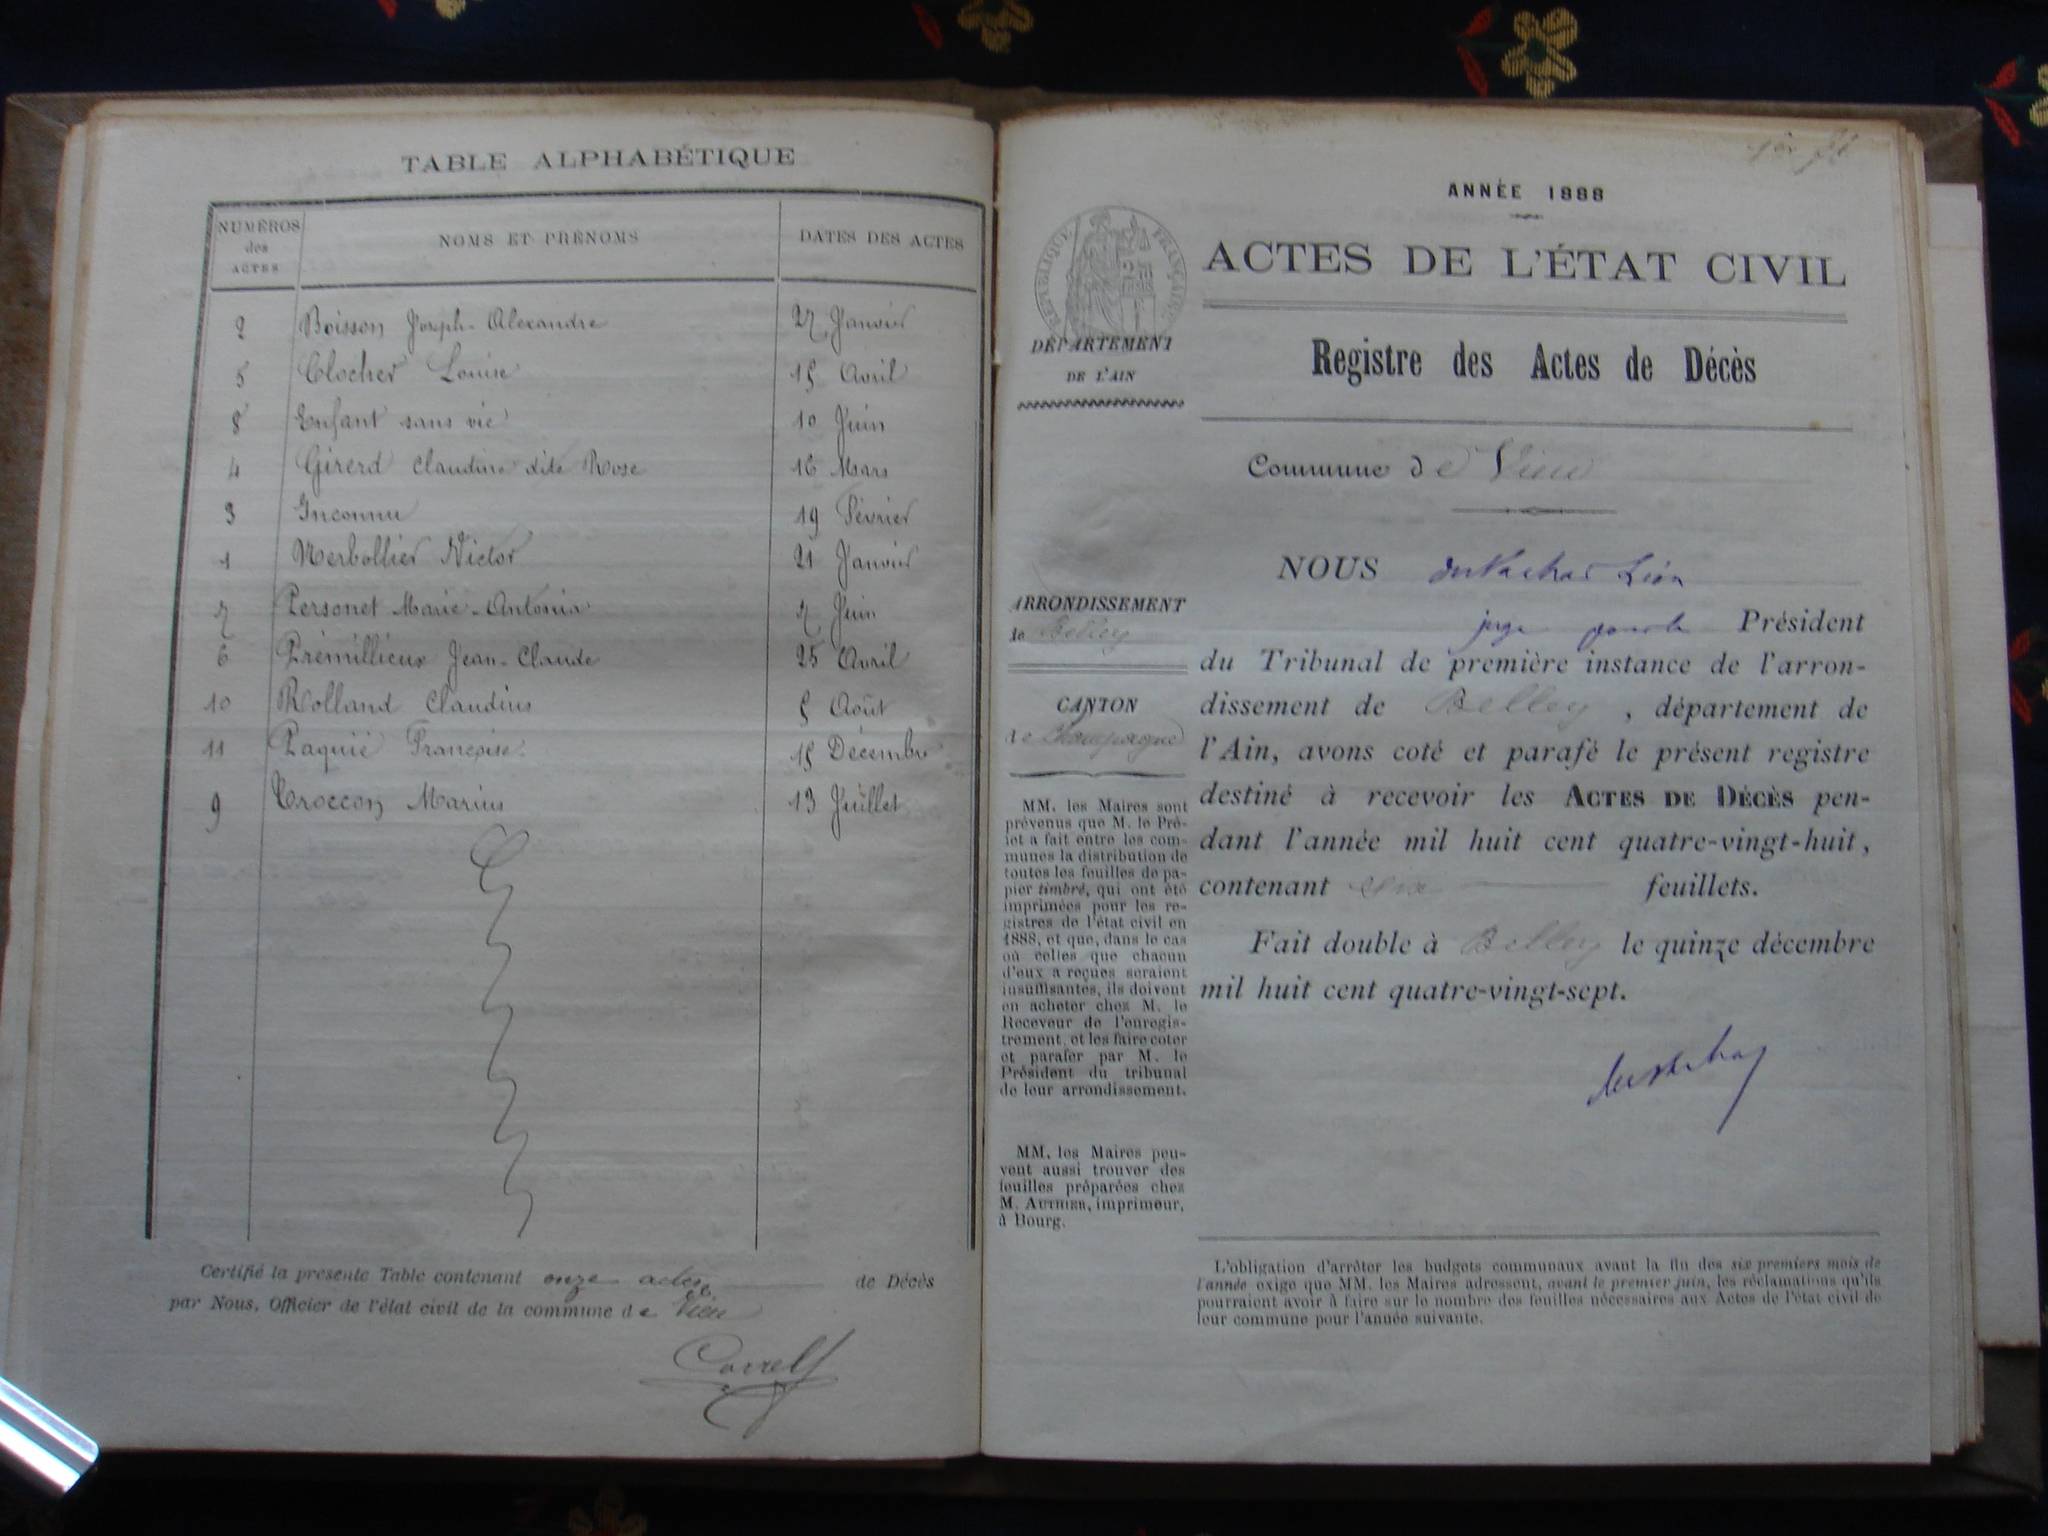 TABLE ALPHABÉTIQUE
NUMÉROS des ACTES NOMS ET PRÉNOMS DATES DES ACTES
2 Boisson Joseph-Alexandre 27 Janvier
5 Clocher Louise 15 Avril
8 Enfant sans vie 10 Juin
4 Girerd Claudine dite Rose 16 Mars
3 Inconnu 19 Février
1 Merbollier Victor 21 Janvier
7 Personet Marie-Antonia 7 Juin
6 Prémillieux Jean-Claude 25 Avril
10 Rolland Claudius 5 Août
11 Françoise 15 Décembre
9 Troccon Marius 13 Juillet
Certifié la présente Table contenant onze actes de Décès
par Nous, Officier de l'état civil de la commune de Vieu
ANNÉE 1888
RÉPUBLIQUE FRANÇAISE
DÉPARTEMENT
DE L'AIN
ARRONDISSEMENT
de Belley
CANTON
de Champagne
MM. les Maires sont
prévenus que M. le Pré-
fet a fait entre les com-
munes la distribution de
toutes les feuilles de pa-
pier timbré, qui ont été
imprimées pour les re-
gistres de l'état civil en
1888, et que, dans le cas
où celles que chacun
d'eux a reçues seraient
insuffisantes, ils doivent
en acheter chez M. le
Receveur de l'enregis-
trement, et les faire coter
et parafer par M. le
Président du tribunal
de leur arrondissement.
MM. les Maires peu-
vent aussi trouver des
feuilles préparées chez
M. AUTHIER, imprimeur,
à Bourg.
ACTES DE L'ÉTAT CIVIL
Registre des Actes de Décès
Commune de Vieu
NOUS Léon
juge pour le Président
du Tribunal de première instance de l'arron-
dissement de Belley, département de
l'Ain, avons coté et parafé le présent registre
destiné à recevoir les ACTES DE DÉCÈS pen-
dant l'année mil huit cent quatre-vingt-huit,
contenant feuillets.
Fait double à Belley le quinze décembre
mil huit cent quatre-vingt-sept.
L'obligation d'arrêter les budgets communaux avant la fin des six premiers mois de
l'année exige que MM. les Maires adressent, avant le premier juin, les réclamations qu'ils
pourraient avoir à faire sur le nombre des feuilles nécessaires aux Actes de l'état civil de
leur commune pour l'année suivante.